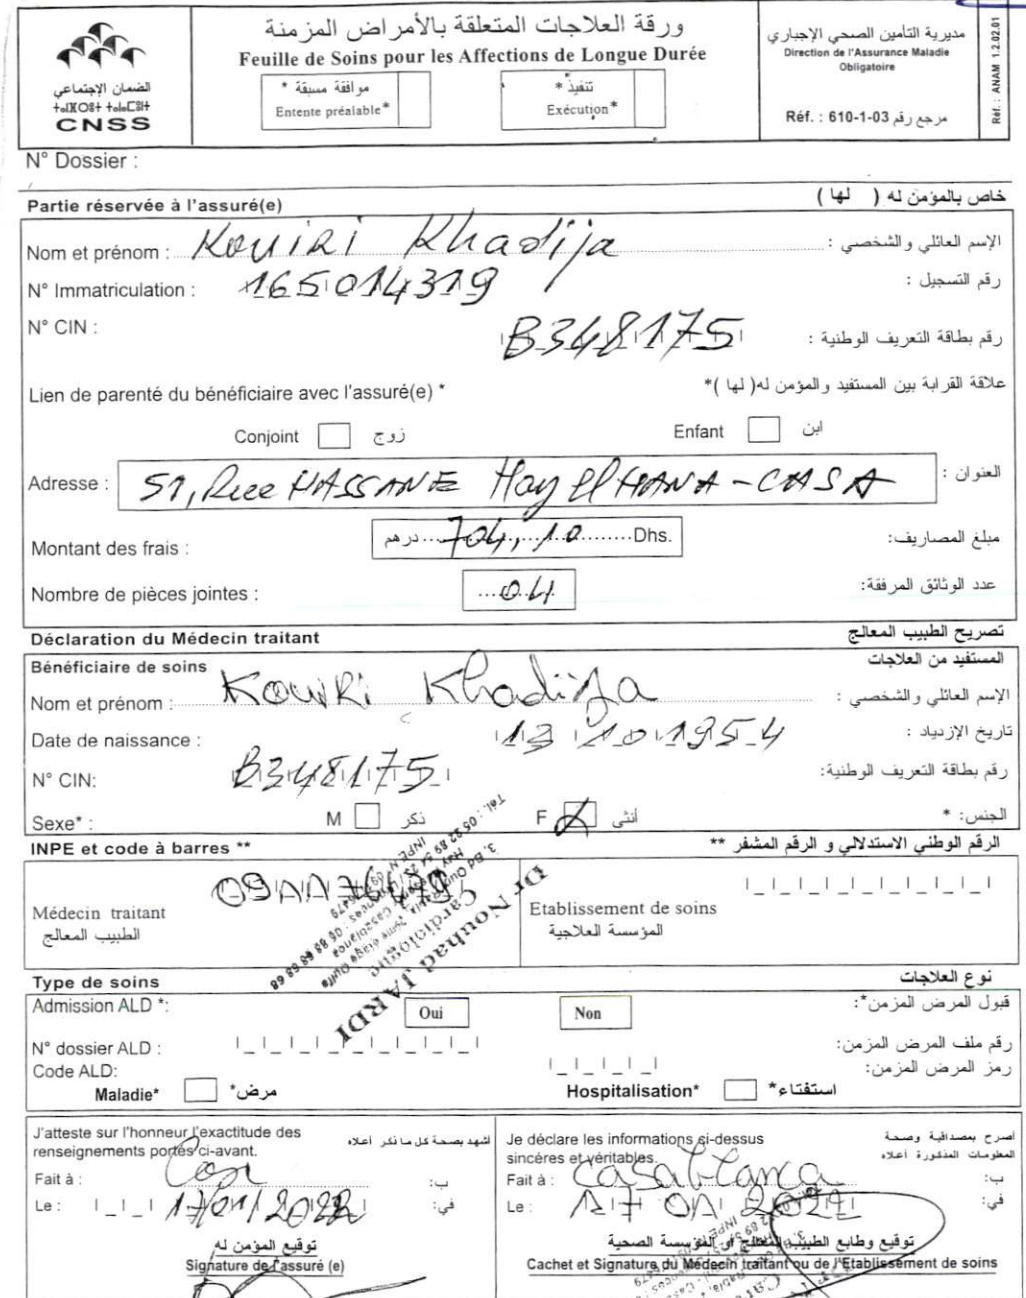 ورقة العلاجات المتعلقة بالأمراض المزمنة
Feuille de Soins pour les Affections de Longue Durée
الضمان الإجتماعي
CNSS
موافقة مسبقة *
Entente préalable*
تنفيذ *
Exécution*
مديرية التأمين الصحي الإجباري
Direction de l'Assurance Maladie
Obligatoire
Réf. : 610-1-03 مرجع رقم
Réf. : ANAM 1.2.02.01
N° Dossier :
Partie réservée à l'assuré(e) خاص بالمؤمن له ( لها )
Nom et prénom : Kouiri Khadija الإسم العائلي والشخصي :
N° Immatriculation : 165014319 رقم التسجيل :
N° CIN : B348175 رقم بطاقة التعريف الوطنية :
Lien de parenté du bénéficiaire avec l'assuré(e) * علاقة القرابة بين المستفيد والمؤمن له( لها )*
Conjoint زوج Enfant ابن
Adresse : 51, Rue HASSANE Hay El HANA - CASA العنوان :
Montant des frais : درهم 704,10 Dhs. مبلغ المصاريف:
Nombre de pièces jointes : 04 عدد الوثائق المرفقة:
Déclaration du Médecin traitant تصريح الطبيب المعالج
Bénéficiaire de soins المستفيد من العلاجات
Nom et prénom : Kouiri Khadija الإسم العائلي والشخصي :
Date de naissance : 13 10 1954 تاريخ الإزدياد :
N° CIN: B348175 رقم بطاقة التعريف الوطنية:
Sexe* : M ذكر F أنثى الجنس: *
INPE et code à barres ** الرقم الوطني الاستدلالي و الرقم المشفر **
Médecin traitant
الطبيب المعالج
Etablissement de soins
المؤسسة العلاجية
Dr Nouhad JARDI
Cardiologue
Type de soins نوع العلاجات
Admission ALD *: Oui Non قبول المرض المزمن*:
N° dossier ALD : رقم ملف المرض المزمن:
Code ALD: رمز المرض المزمن:
Maladie* مرض* Hospitalisation* استشفاء*
J'atteste sur l'honneur l'exactitude des
renseignements portés ci-avant.
أشهد بصحة كل ما ذكر أعلاه
Fait à : Casa ب:
Le : 17/01/2022 في:
توقيع المؤمن له
Signature de l'assuré (e)
Je déclare les informations ci-dessus
sincères et véritables.
أصرح بمصداقية وصحة
المعلومات المذكورة أعلاه
Fait à : Casablanca ب:
Le : 17 01 2022 في:
توقيع وطابع الطبيب المعالج أو المؤسسة الصحية
Cachet et Signature du Médecin traitant ou de l'Etablissement de soins